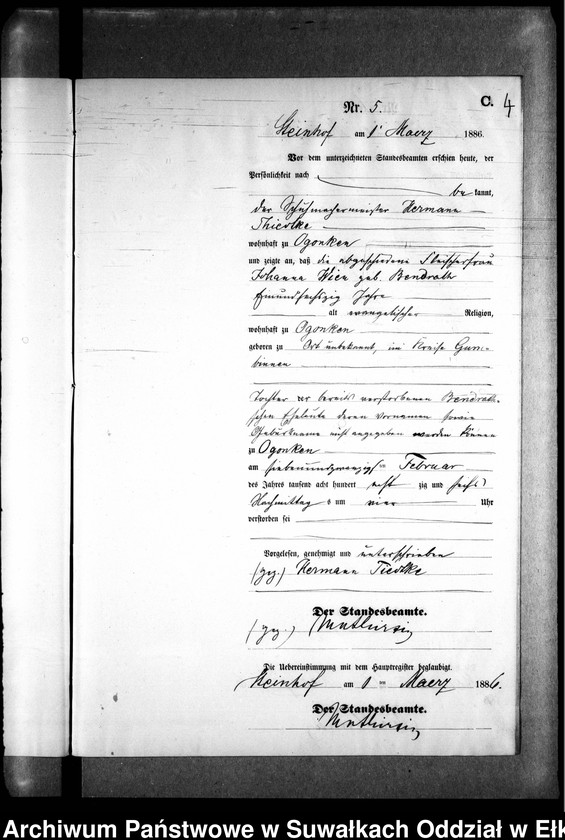 C. 4
Nr. 5.
Steinhof am 1ten Maerz 1886.
Vor dem unterzeichneten Standesbeamten erschien heute, der
Persönlichkeit nach
be kannt,
der Schuhmachermeister Hermann
Thiedtke
wohnhaft zu Ogonken
und zeigte an, daß die abgeschiedene Fleischerfrau
Johanna Wien geb. Bendrath
Einundsechszig Jahre
alt evangelischer Religion,
wohnhaft zu Ogonken
geboren zu Ort unbekannt, im Kreise Gum-
binnen
Tochter der bereits verstorbenen Bendrath-
schen Eheleute deren Vornamen sowie
Geburtsname nicht angegeben werden können
zu Ogonken
am siebenundzwanzigsten Februar
des Jahres tausend acht hundert acht zig und sechs
Nachmittag s um vier Uhr
verstorben sei
Vorgelesen, genehmigt und unterschrieben
(gez.) Hermann Tiedtke
Der Standesbeamte.
(gez.)
Die Uebereinstimmung mit dem Hauptregister beglaubigt.
Steinhof am 1ten Maerz 1886.
Der Standesbeamte.
Archiwum Państwowe w Suwałkach Oddział w Ełk